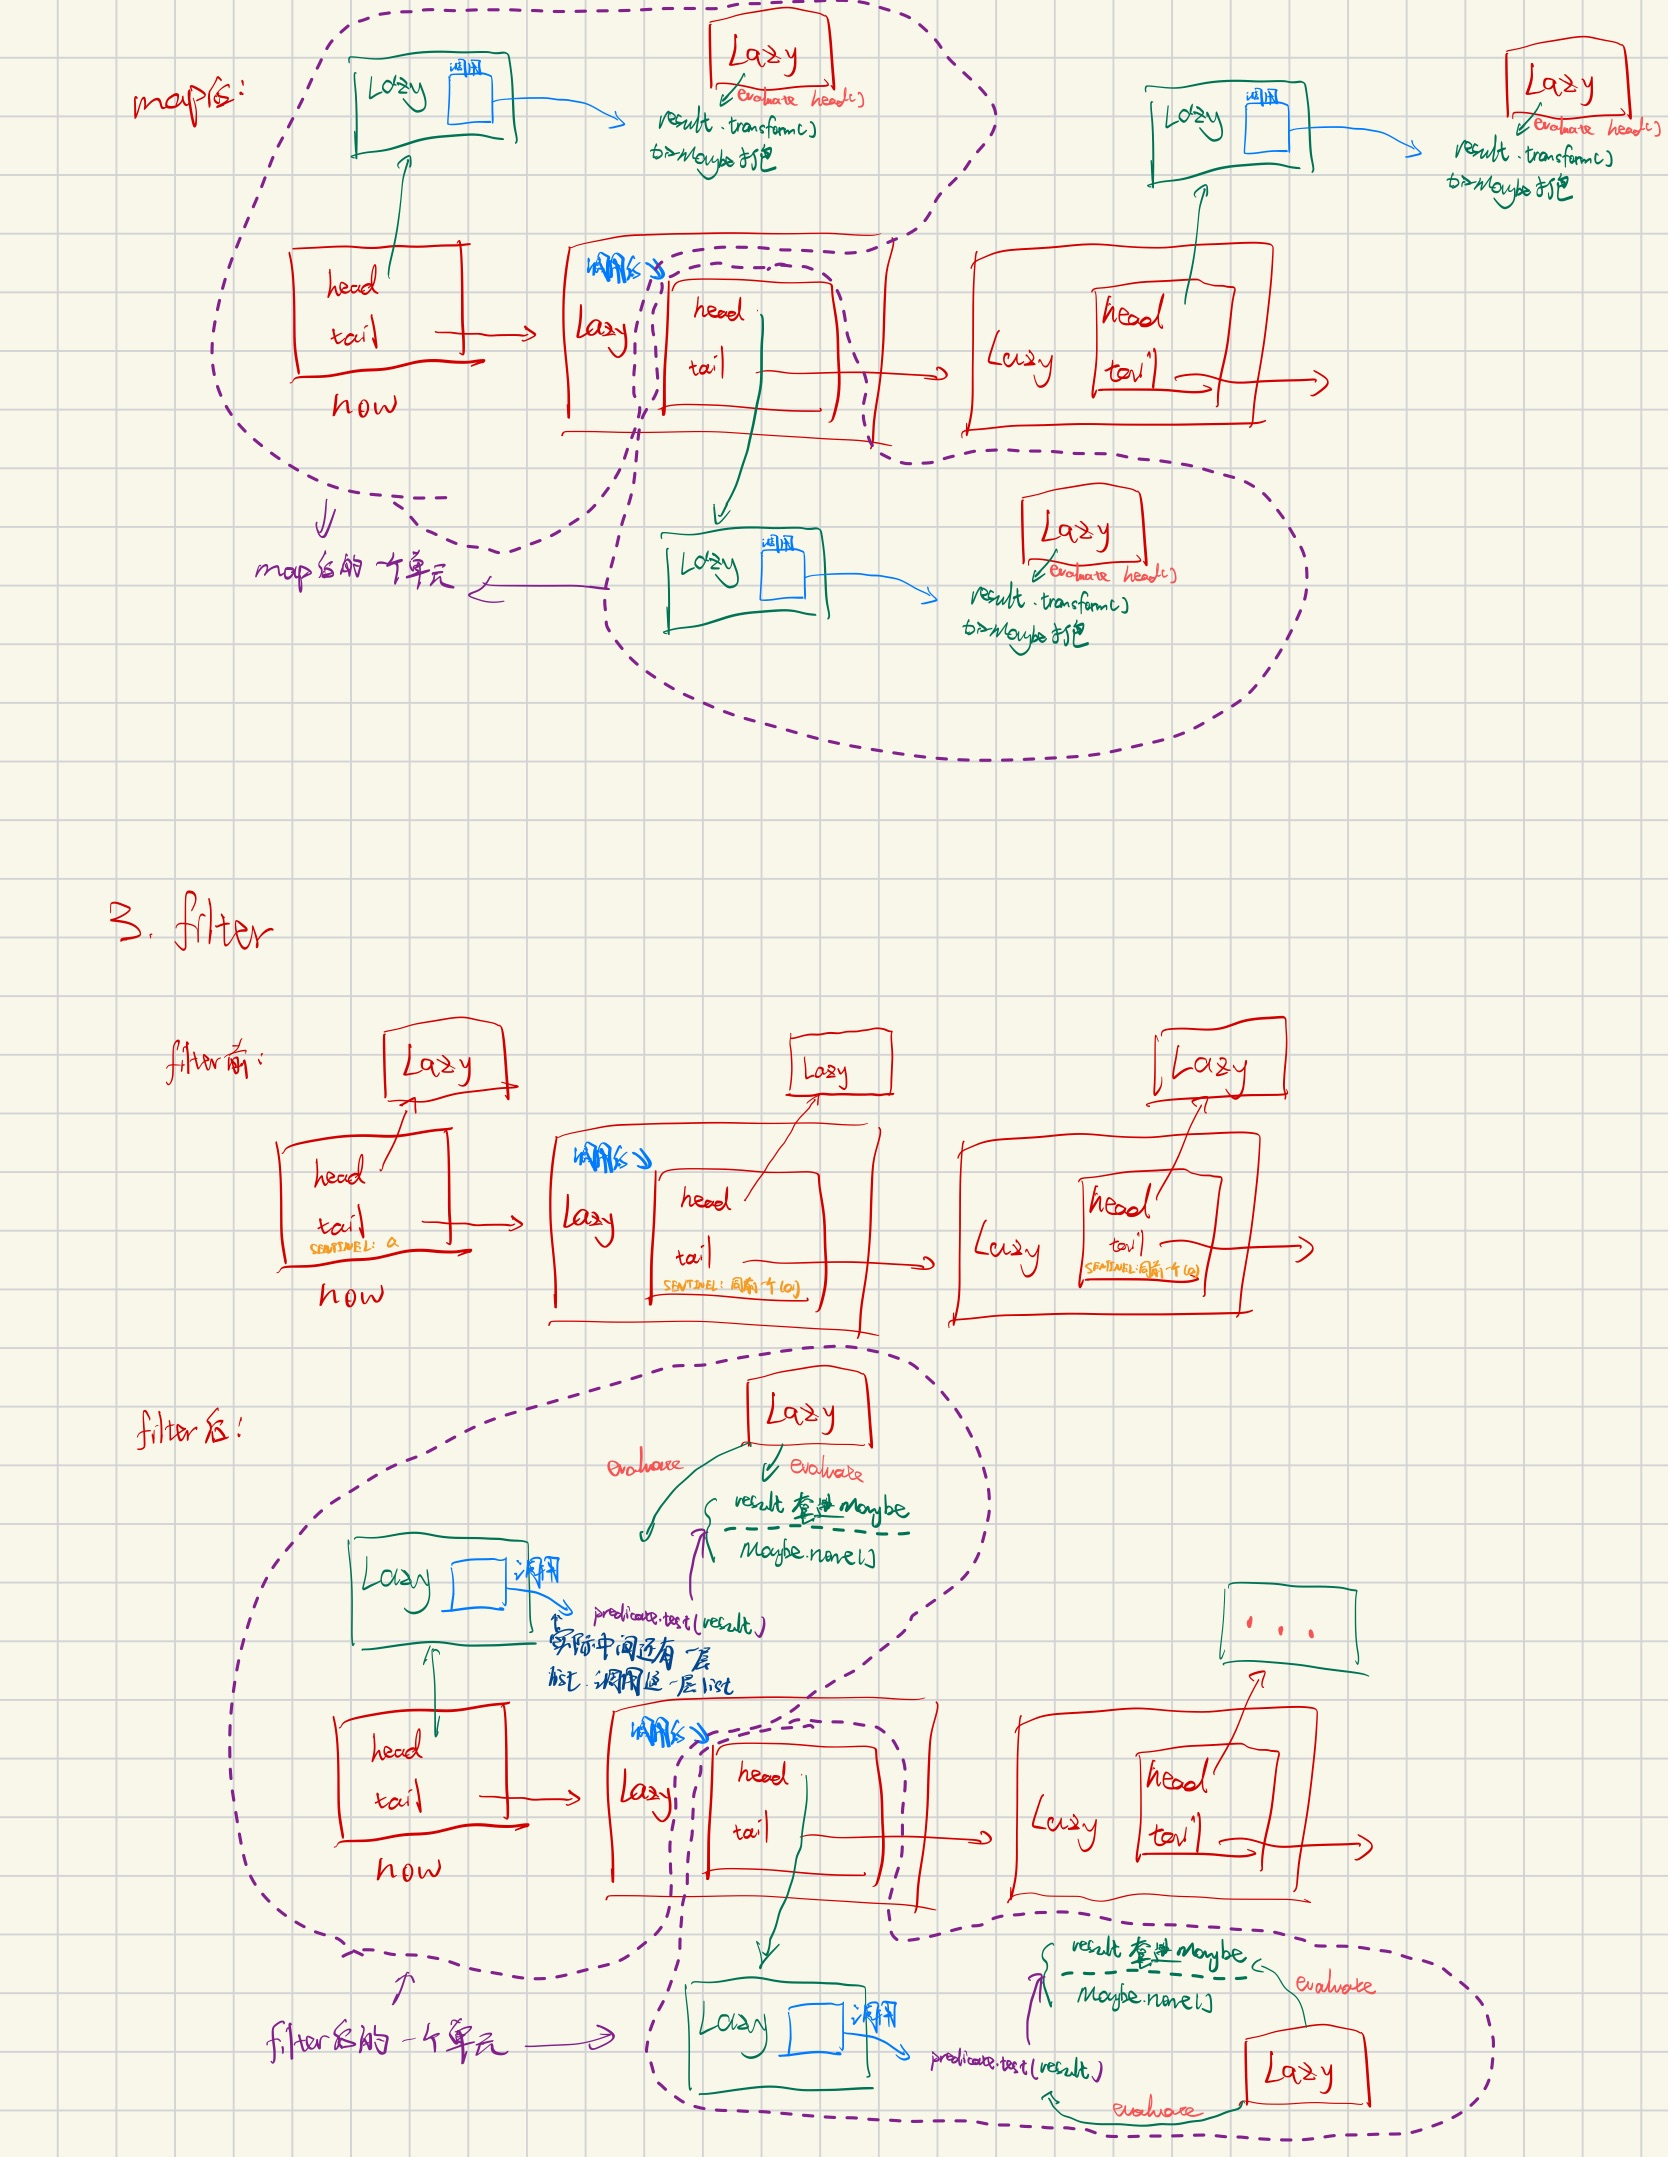 map后:
Lazy
调用
Lazy
evaluate head()
result.transform()
加≥Maybe打包
Lazy
调用
Lazy
evaluate head()
result.transform()
加≥Maybe打包
head
tail
now
Lazy
head
tail
Lazy
head
tail
map后的一个单元
Lazy
调用
Lazy
evaluate head()
result.transform()
加≥Maybe打包
3. filter
filter前:
Lazy
Lazy
Lazy
head
tail
SENTINEL: a
now
Lazy
head
tail
SENTINEL: 同前一个(a)
Lazy
head
tail
SENTINEL: 同前一个(a)
filter后:
Lazy
evaluate
evaluate
result 套进Maybe
Maybe.none()
Lazy
调用
predicate.test(result)
实际中间还有一层
list.调用这一层list
...
head
tail
now
Lazy
head
tail
Lazy
head
tail
filter后的一个单元
Lazy
调用
predicate.test(result)
result 套进Maybe
Maybe.none()
evaluate
Lazy
evaluate